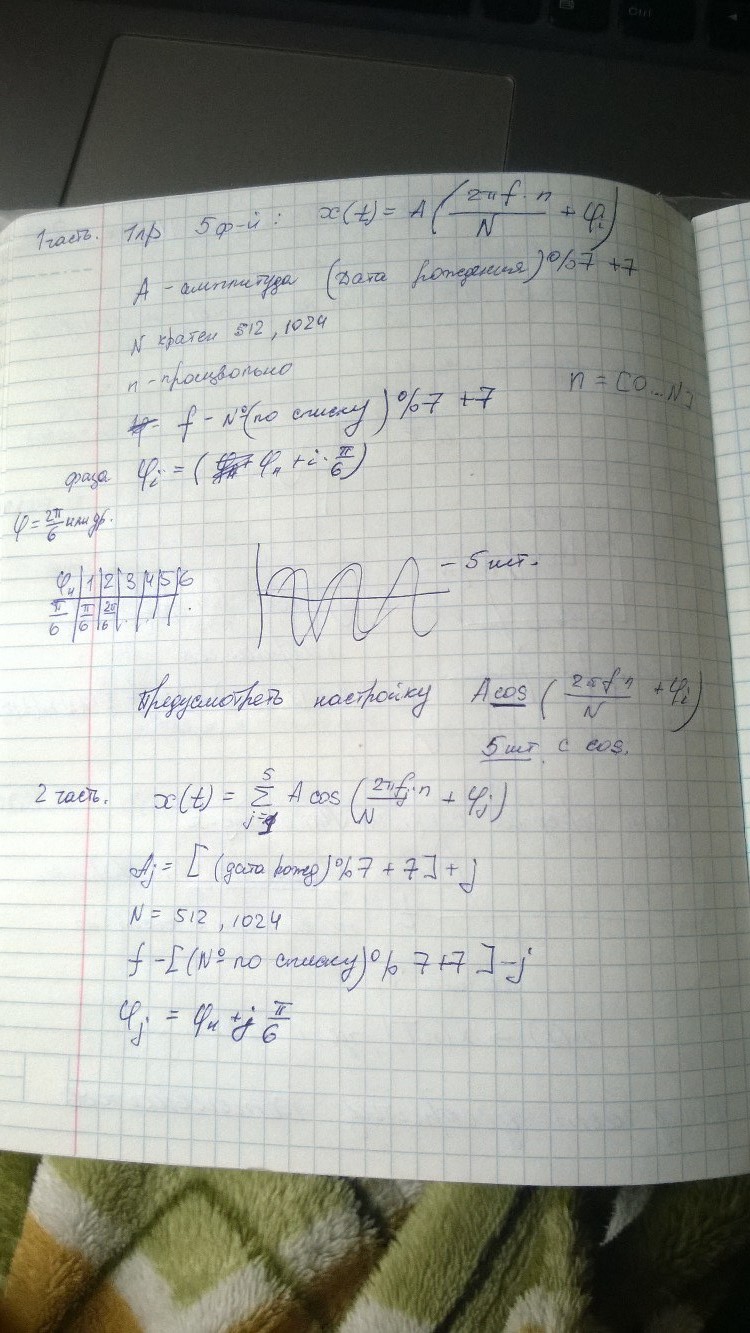 1 часть. 1лр 5 ф-й: x(t) = A(2πf·n/N + φi)
A - амплитуда (Дата рождения)%7 +7
N кратен 512, 1024
n - произвольно
n = [0...N]
f - №(по списку)%7 +7
фаза φi = (φн + i·π/6)
φ = 2π/6 или др.
φн | 1 | 2 | 3 | 4 | 5 | 6
π/6 | π/6 | 2π/6
- 5 шт.
Предусмотреть настройку A cos (2πf·n/N + φi)
5 шт. с cos.
2 часть. x(t) = 5∑j=1 A cos (2πfj·n/N + φj)
Aj = [(дата рожд)%7 + 7] + j
N = 512, 1024
f - [(№ по списку)% 7+7] - j
φj = φн + j π/6
Ctrl